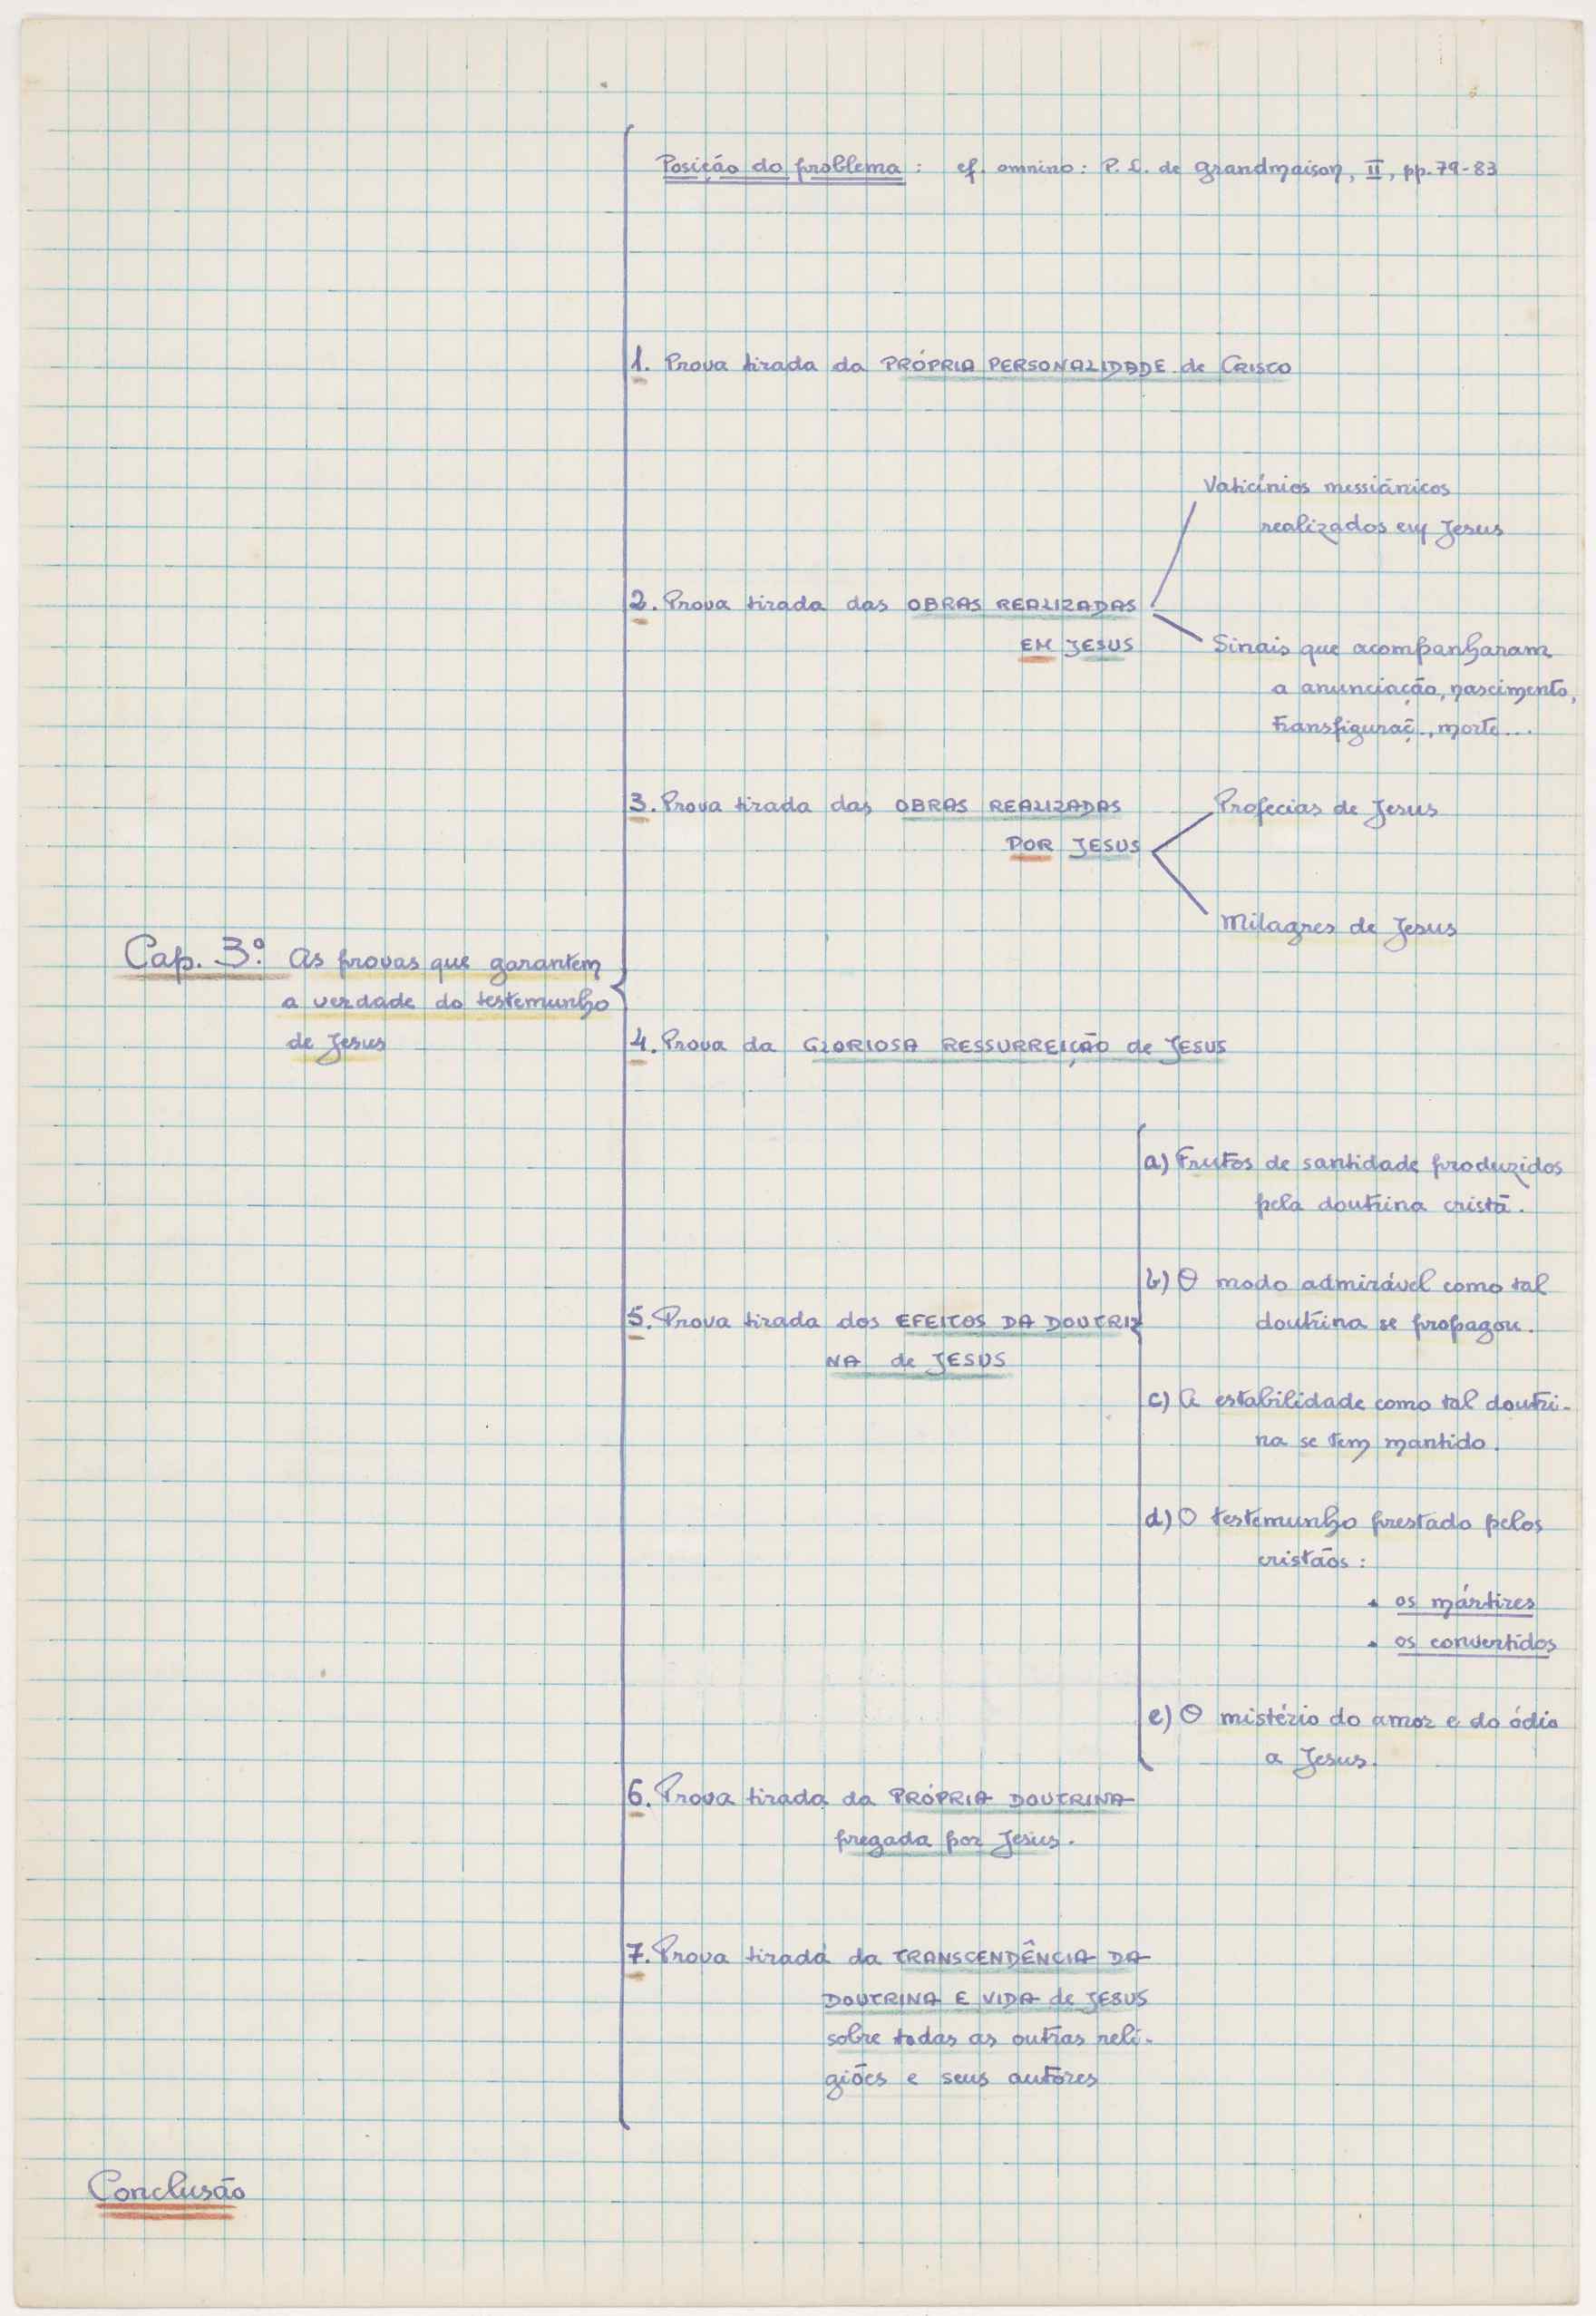 Posição do problema : cf. omnino: P. L. de Grandmaison, II, pp. 79-83
1. Prova tirada da PRÓPRIA PERSONALIDADE de CRISTO
Vaticínios messiânicos
realizados em Jesus
2. Prova tirada das OBRAS REALIZADAS
EM JESUS
Sinais que acompanharam
a anunciação, nascimento,
transfiguraç., morte...
3. Prova tirada das OBRAS REALIZADAS
POR JESUS
Profecias de Jesus
Milagres de Jesus
Cap. 3º. As provas que garantem
a verdade do testemunho
de Jesus
4. Prova da GLORIOSA RESSURREIÇÃO de JESUS
5. Prova tirada dos EFEITOS DA DOUTRI-
NA de JESUS
a) Frutos de santidade produzidos
pela doutrina cristã.
b) O modo admirável como tal
doutrina se propagou.
c) A estabilidade como tal doutri-
na se tem mantido.
d) O testemunho prestado pelos
cristãos :
• os mártires
• os convertidos
e) O mistério do amor e do ódio
a Jesus.
6. Prova tirada da PRÓPRIA DOUTRINA
pregada por Jesus.
7. Prova tirada da TRANSCENDÊNCIA DA
DOUTRINA E VIDA de JESUS
sobre todas as outras reli-
giões e seus autores
Conclusão